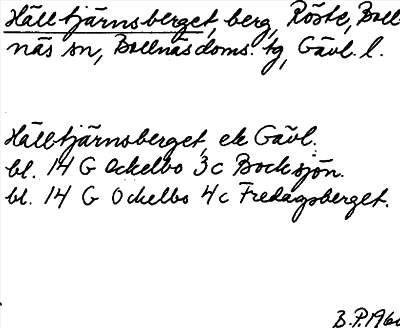 Hälltjärnsberget, berg, Röste, Boll-
näs sn, Bollnäs doms. tg, Gävl. l.
Hälltjärnsberget, ek Gävl.
bl. 14 G Ockelbo 3c Bocksjön.
bl. 14 G Ockelbo 4c Fredagsberget.
B.P.196